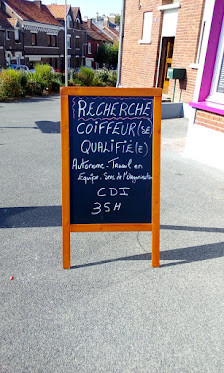 RECHERCHE
COIFFEUR(SE
QUALIFIÉ(E)
Autonome - Travail en
Equipe. Sens de l'Organisation
CDI
35H